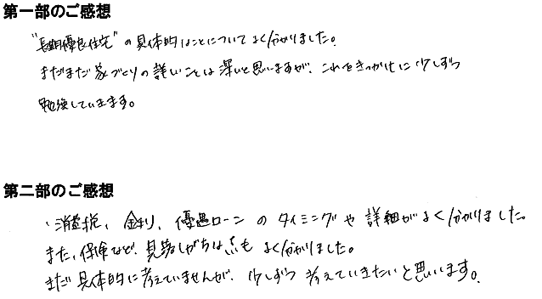 第一部のご感想
"長期優良住宅"の具体的なことについてよく分かりました。
まだまだ家づくりの詳しいことは深いと思いますが、これをきっかけに少しずつ
勉強していきます。
第二部のご感想
・消費税、金利、優遇ローンのタイミングや詳細がよく分かりました。
また、保険など、見落しがちな点もよく分かりました。
まだ具体的に考えていませんが、少しずつ考えていきたいと思います。